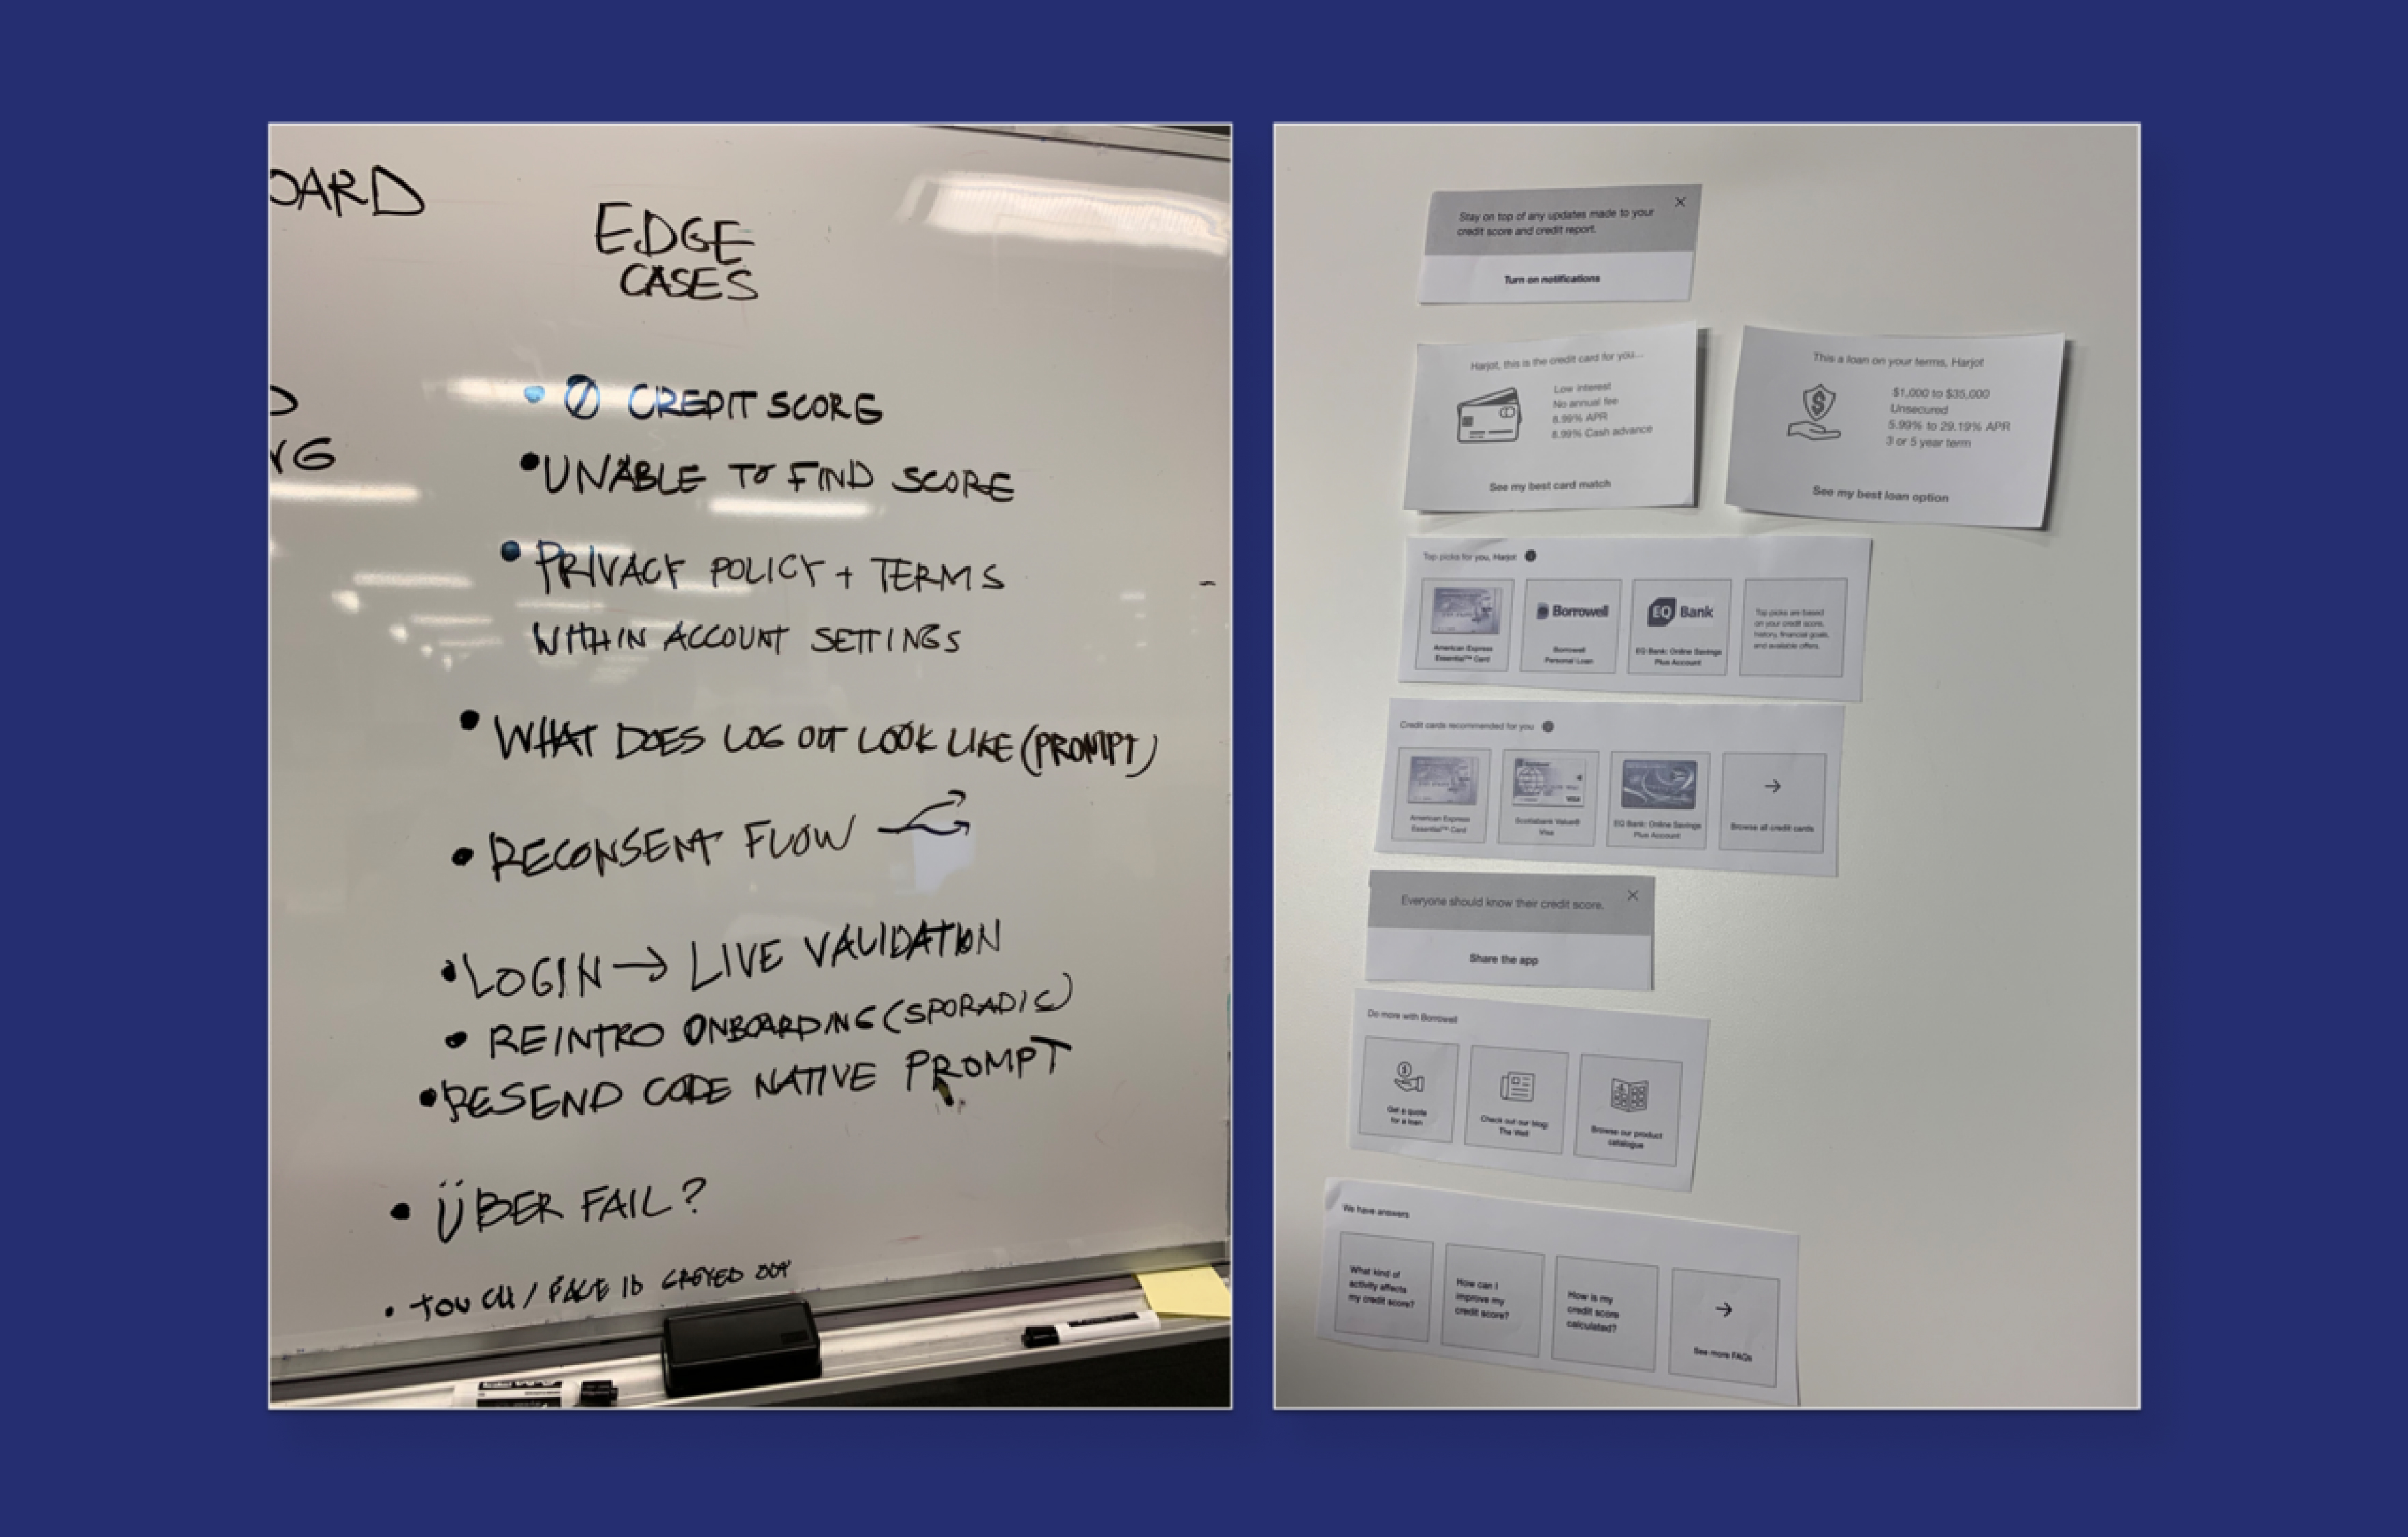 OARD
EDGE
CASES
• Ø CREDIT SCORE
• UNABLE TO FIND SCORE
• PRIVACY POLICY + TERMS
WITHIN ACCOUNT SETTINGS
• WHAT DOES LOG OUT LOOK LIKE (PROMPT)
• RECONSENT FLOW
• LOGIN → LIVE VALIDATION
• REINTRO ONBOARDING (SPORADIC)
• RESEND CODE NATIVE PROMPT
• ÜBER FAIL?
• TOUCH / FACE ID GREYED OUT
D
NG
Stay on top of any updates made to your
credit score and credit report.
Turn on notifications
Harjot, this is the credit card for you...
Low interest
No annual fee
8.99% APR
8.99% Cash advance
See my best card match
This a loan on your terms, Harjot
$1,000 to $35,000
Unsecured
5.99% to 29.19% APR
3 or 5 year term
See my best loan option
Top picks for you, Harjot
American Express
Essential™ Card
Borrowell
Borrowell
Personal Loan
EQ Bank
EQ Bank: Online Savings
Plus Account
Top picks are based
on your credit score,
history, financial goals,
and available offers.
Credit cards recommended for you
American Express
Essential™ Card
VISA
Scotiabank Value®
Visa
EQ Bank: Online Savings
Plus Account
→
Browse all credit cards
Everyone should know their credit score.
Share the app
Do more with Borrowell
Get a quote
for a loan
Check out our blog:
The Well
Browse our product
catalogue
We have answers
What kind of
activity affects
my credit score?
How can I
improve my
credit score?
How is my
credit score
calculated?
→
See more FAQs